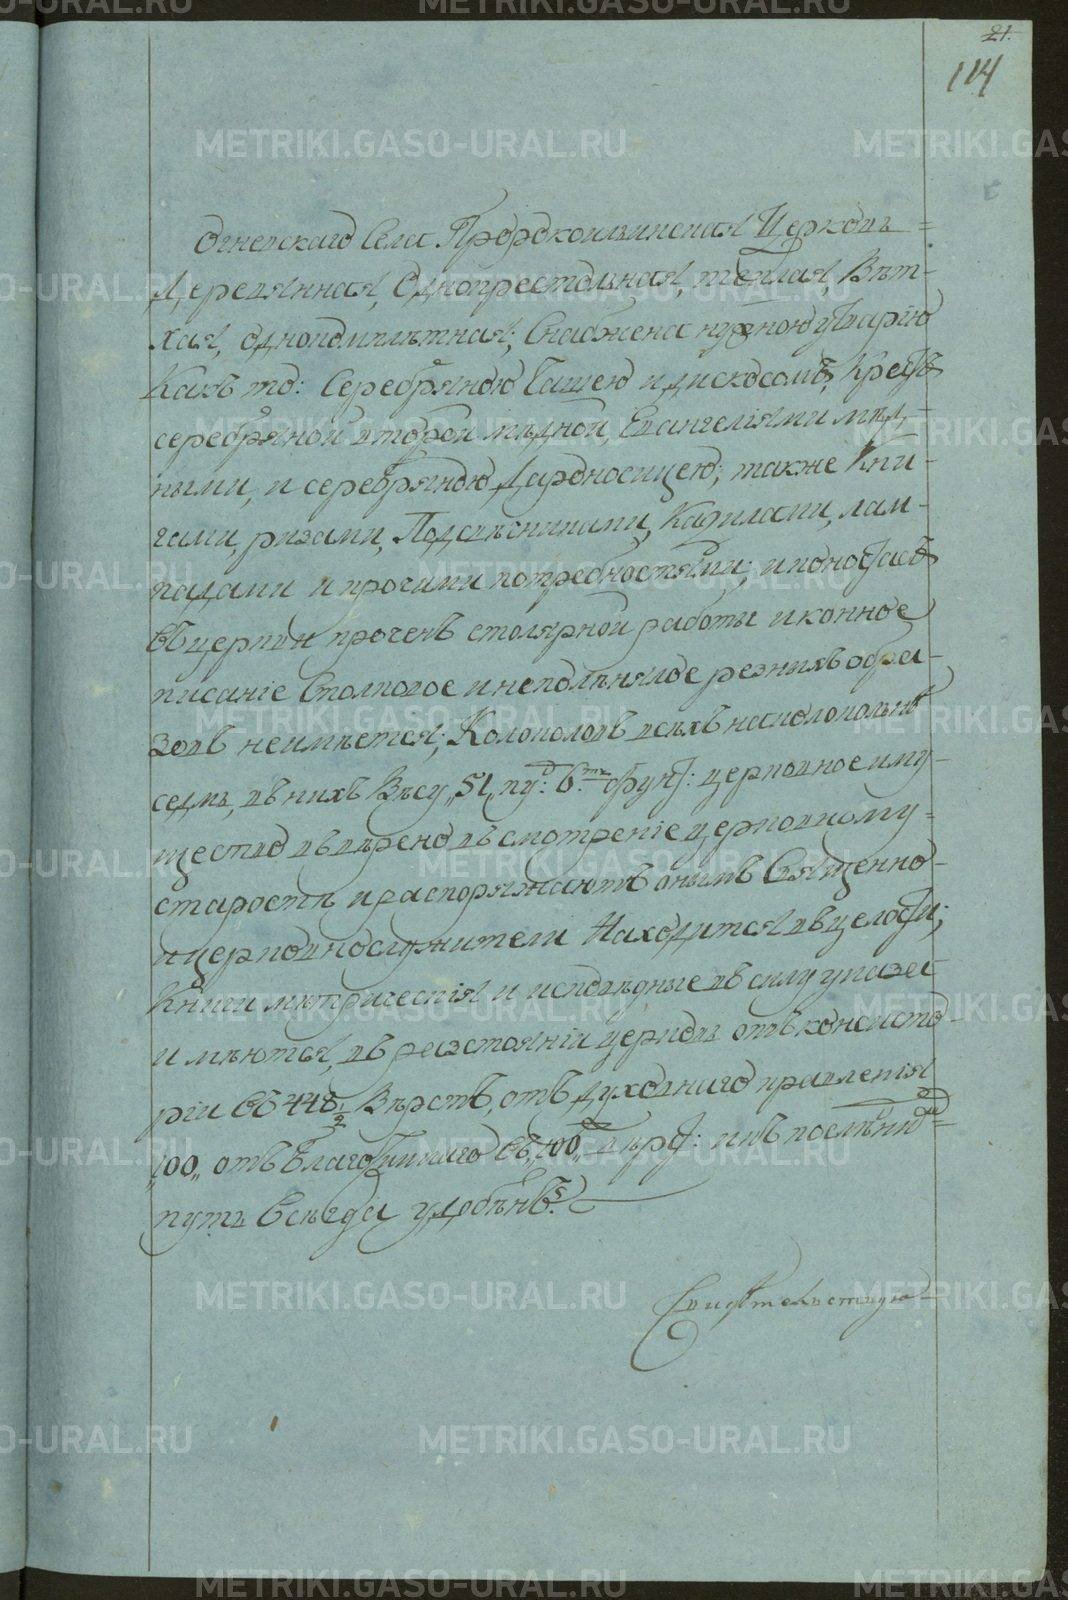 21.
114
Огневскаго Села Пророкоильинская Церковь=
Деревянная, Однопрестольная, теплая Вѣт-
хая, однокомплѣтная; Снабжена нужною утварію
Какъ то: Серебряною Чашею и дискосомъ, Крестъ
серебряной второй мѣдной, Евангеліями мѣд-
ными, и серебряною Дароносицею; также Кни-
гами, ризами, Подсвѣсниками, Кадилами, лам-
падами и прочими потребностями; иконостасъ
въ церкви проченъ столярной работы иконное
писаніе Столповое и неполинялое резныхъ обра-
зовъ неимѣется; Колоколовъ всѣхъ на колокольнѣ
седмь, въ нихъ Вѣсу „51„ пуд: 6.ть фунт: церковное иму-
щество ввѣрено въ смотреніе церковному-
старостѣ и распоряжаютъ онымъ Священно-
и церковнослужители Находится въ целости;
Книги метрическія и исповѣдные въ силу указа
имѣются, въ разстояніи церковь отъ консисто-
ріи въ 448 1/2 Верстъ, отъ духовнаго правленія
„100„ отъ Благочиннаго въ „100„ верст: и къ послѣднюю=
путь Всегда удобенъ.
Свидѣтельствую
METRIKI.GASO-URAL.RU